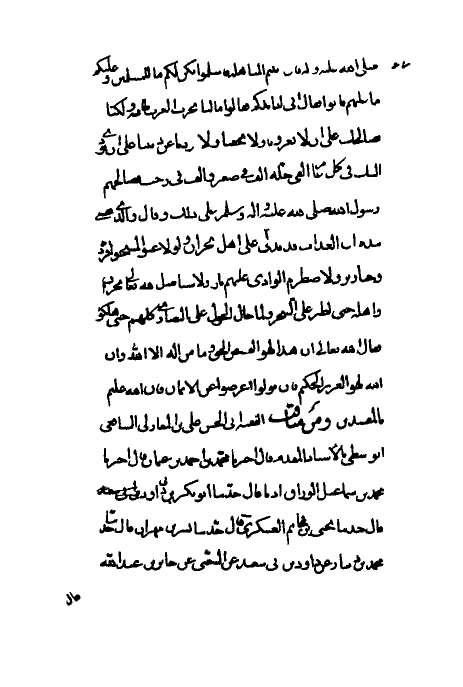 صلى الله عليه وآله فان ابيتم المباهلة فاسلموا يكن لكم ما للمسلمين وعليكم
ما عليهم فابوا فقال اني انابذكم فقالوا ما لنا بحرب العرب طاقة ولكنا
نصالحك على ان لا تغزونا ولا تخيفنا ولا تردنا عن ديننا على ان نؤدي
اليك في كل سنة الفي حلة الف في صفر والف في رجب فصالحهم
رسول الله صلى الله عليه وآله وسلم على ذلك وقال والذي نفسي
بيده ان العذاب قد تدلى على اهل نجران ولو لاعنوا لمسخوا قردة
وخنازير ولاضطرم الوادي عليهم نارا ولاستاصل الله تعالى نجران
واهله حتى الطير على الشجر ولما حال الحول على النصارى كلهم حتى هلكوا
فقال الله تعالى ان هذا لهو القصص الحق وما من اله الا الله وان
الله لهو العزيز الحكيم فان تولوا اعرضوا عن الايمان فان الله عليم
بالمفسدين ومن مناقب الفقيه ابي الحسن علي بن المغازلي الشافعي
الواسطي بالاسناد المقدم قال اخبرنا محمد بن احمد بن عثمان قال اخبرنا
محمد بن اسماعيل الوراق اذنا قال حدثنا ابو بكر بن ابي داود
قال حدثنا يحيى بن حاتم العسكري قال حدثنا بشر بن مهران قال حدثنا
محمد بن دينار عن داود بن ابي عن الشعبي عن جابر بن عبد الله
قال